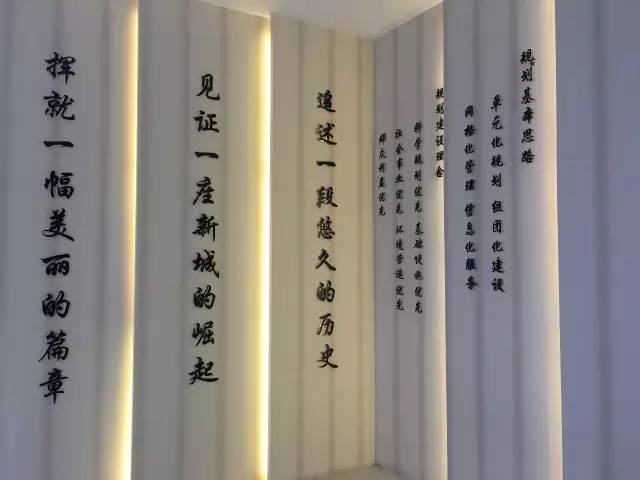 规划基本思路
单元化规划 组团化建设
网格化管理 信息化服务
规划建设理念
科学规划优先 基础设施优先
社会事业优先 环境营造优先
群众利益优先
追述一段悠久的历史
见证一座新城的崛起
挥就一幅美丽的篇章